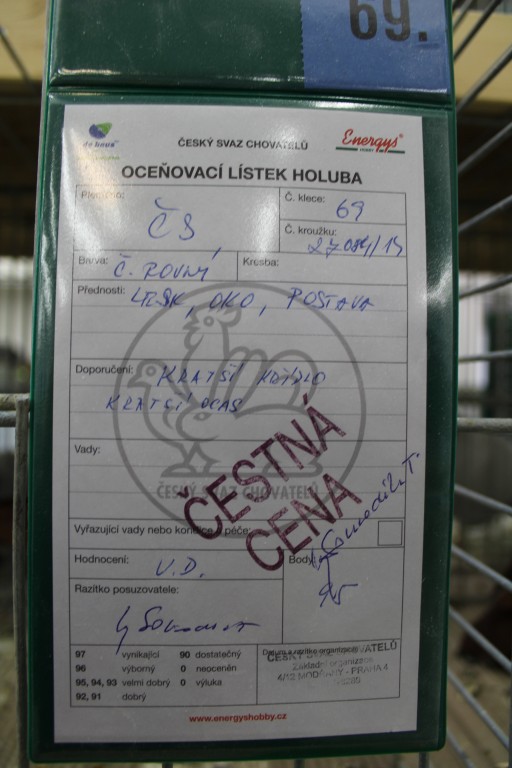 69.
de heus
ČESKÝ SVAZ CHOVATELŮ
Energys
HOBBY
OCEŇOVACÍ LÍSTEK HOLUBA
Plemeno:
ČS
Č. klece:
69
Č. kroužku:
Barva:
Č. ROVNÝ
Kresba:
Přednosti: LESK, OKO, POSTAVA
Doporučení: KRATŠÍ KŘÍDLO
KRATŠÍ OCAS
Vady:
ČESKÝ SVAZ CHOVATELŮ
ČESTNÁ
CENA
Vyřazující vady nebo kondice a péče:
Hodnocení:
V.D.
Body:
95
Razítko posuzovatele:
97 vynikající 90 dostatečný
96 výborný 0 neoceněn
95, 94, 93 velmi dobrý 0 výluka
92, 91 dobrý
Datum a razítko organizace:
ČESKÝ SVAZ CHOVATELŮ
Základní organizace
4/12 MODŘANY - PRAHA 4
www.energyshobby.cz